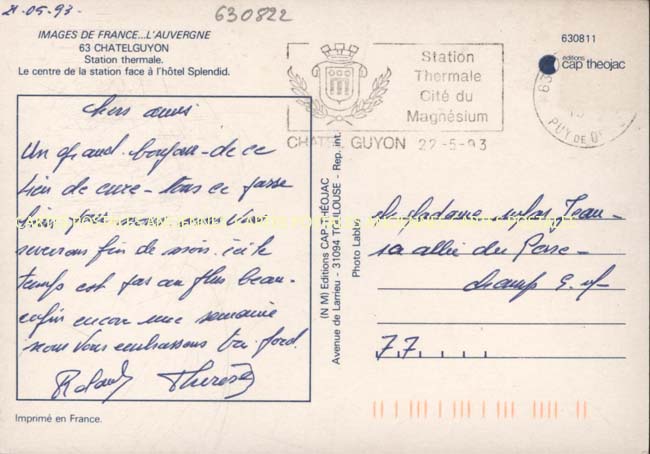 21-05-93-
630822
IMAGES DE FRANCE...L'AUVERGNE
63 CHATELGUYON
Station thermale.
Le centre de la station face à l'hôtel Splendid.
Station
Thermale
Cité du
Magnésium
CHATEL GUYON 22-5-93
63
PUY DE D
630811
editions
cap theojac
chers amis
Un grand bonjour de ce
lieu de cure - tous ce passe
bien
fin de mois. ici le
temps est pas au plus beau-
enfin encore une semaine
nous vous embrassons très fort.
Roland Thérèse
Imprimé en France.
(N M) Editions CAP-THÉOJAC
Avenue de Larrieu - 31094 TOULOUSE - Rep. Int.
Photo Labbé
Jean-
allée du
champ
77